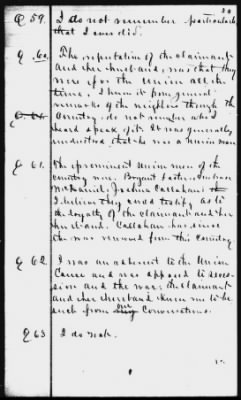 20
Q 59. I do not remember particularly
that I ever did.
Q 60. The reputation of the claimant
and her husband, was that they
were for the Union all the
time. I knew it from general
remarks of the neighbors through the
Country. do not remember who I
heard speak of it. It was generally
understood that he was a union man
Q 61. The prominent Union men of the
country were. Bryant
McDaniel, Joshua Callahan
I believe they could testify as to
the loyalty of the claimant and her
husband. Callahan has since
the war removed from this country
Q 62. I was an adherent to the Union
Cause and was opposed to seces-
sion and the war; the claimant
and her husband knew me to be
such from our Conversations.
Q 63 I do not.